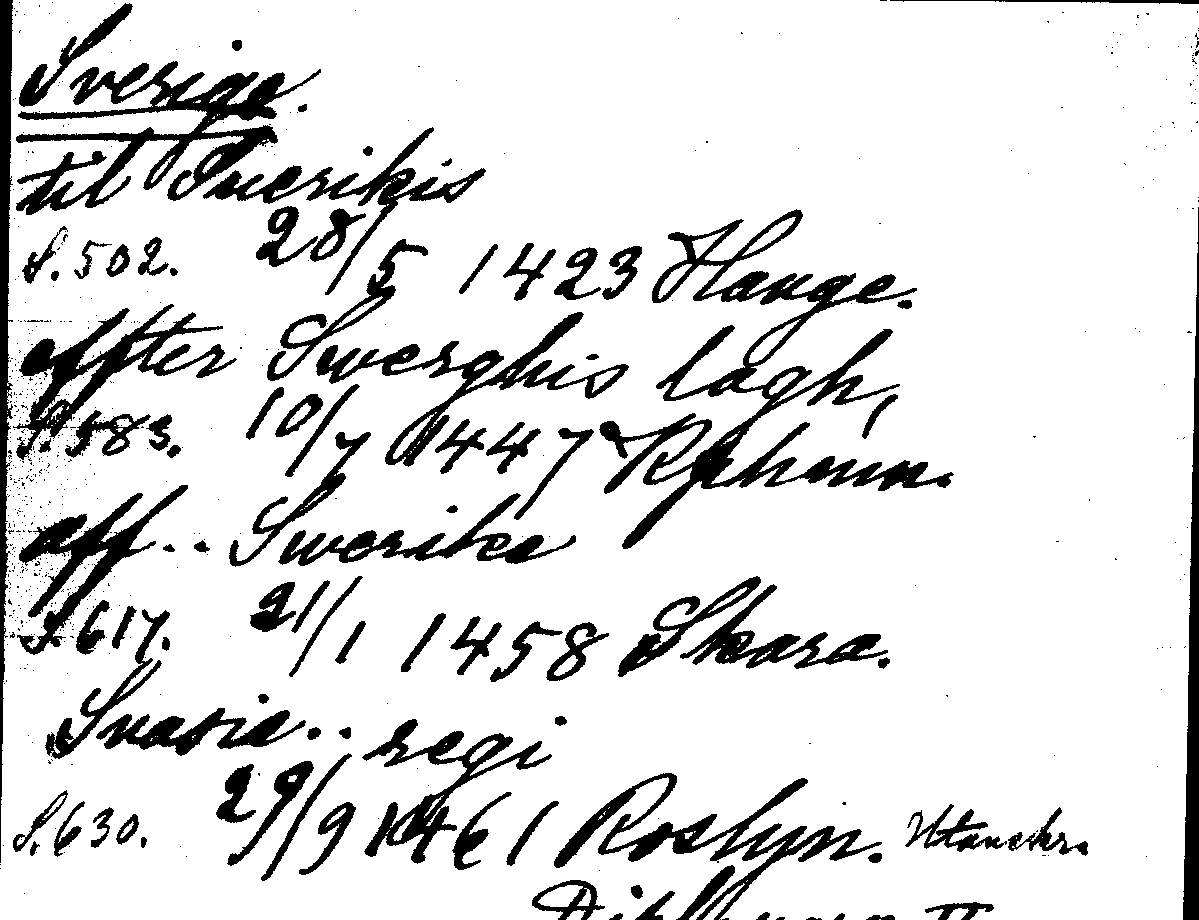 Sverige.
til Suerikis
S. 502. 28/5 1423 Hauge.
effter Swerghis lagh,
S. 583. 10/7 1447 Kbhavn.
aff.. Swerike
S. 617. 21/1 1458 Skara.
Suasie.. regi
S. 630. 29/9 1461 Roslyn.